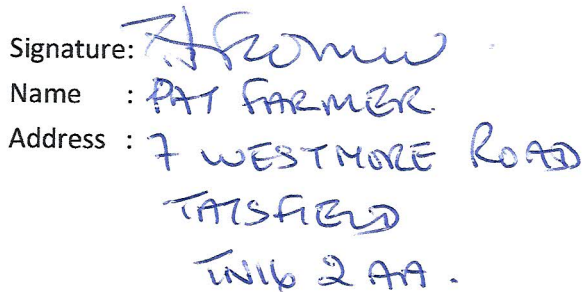 Signature:
Name : PAT FARMER
Address : 7 WESTMORE ROAD
TATSFIELD
TN16 2AA.